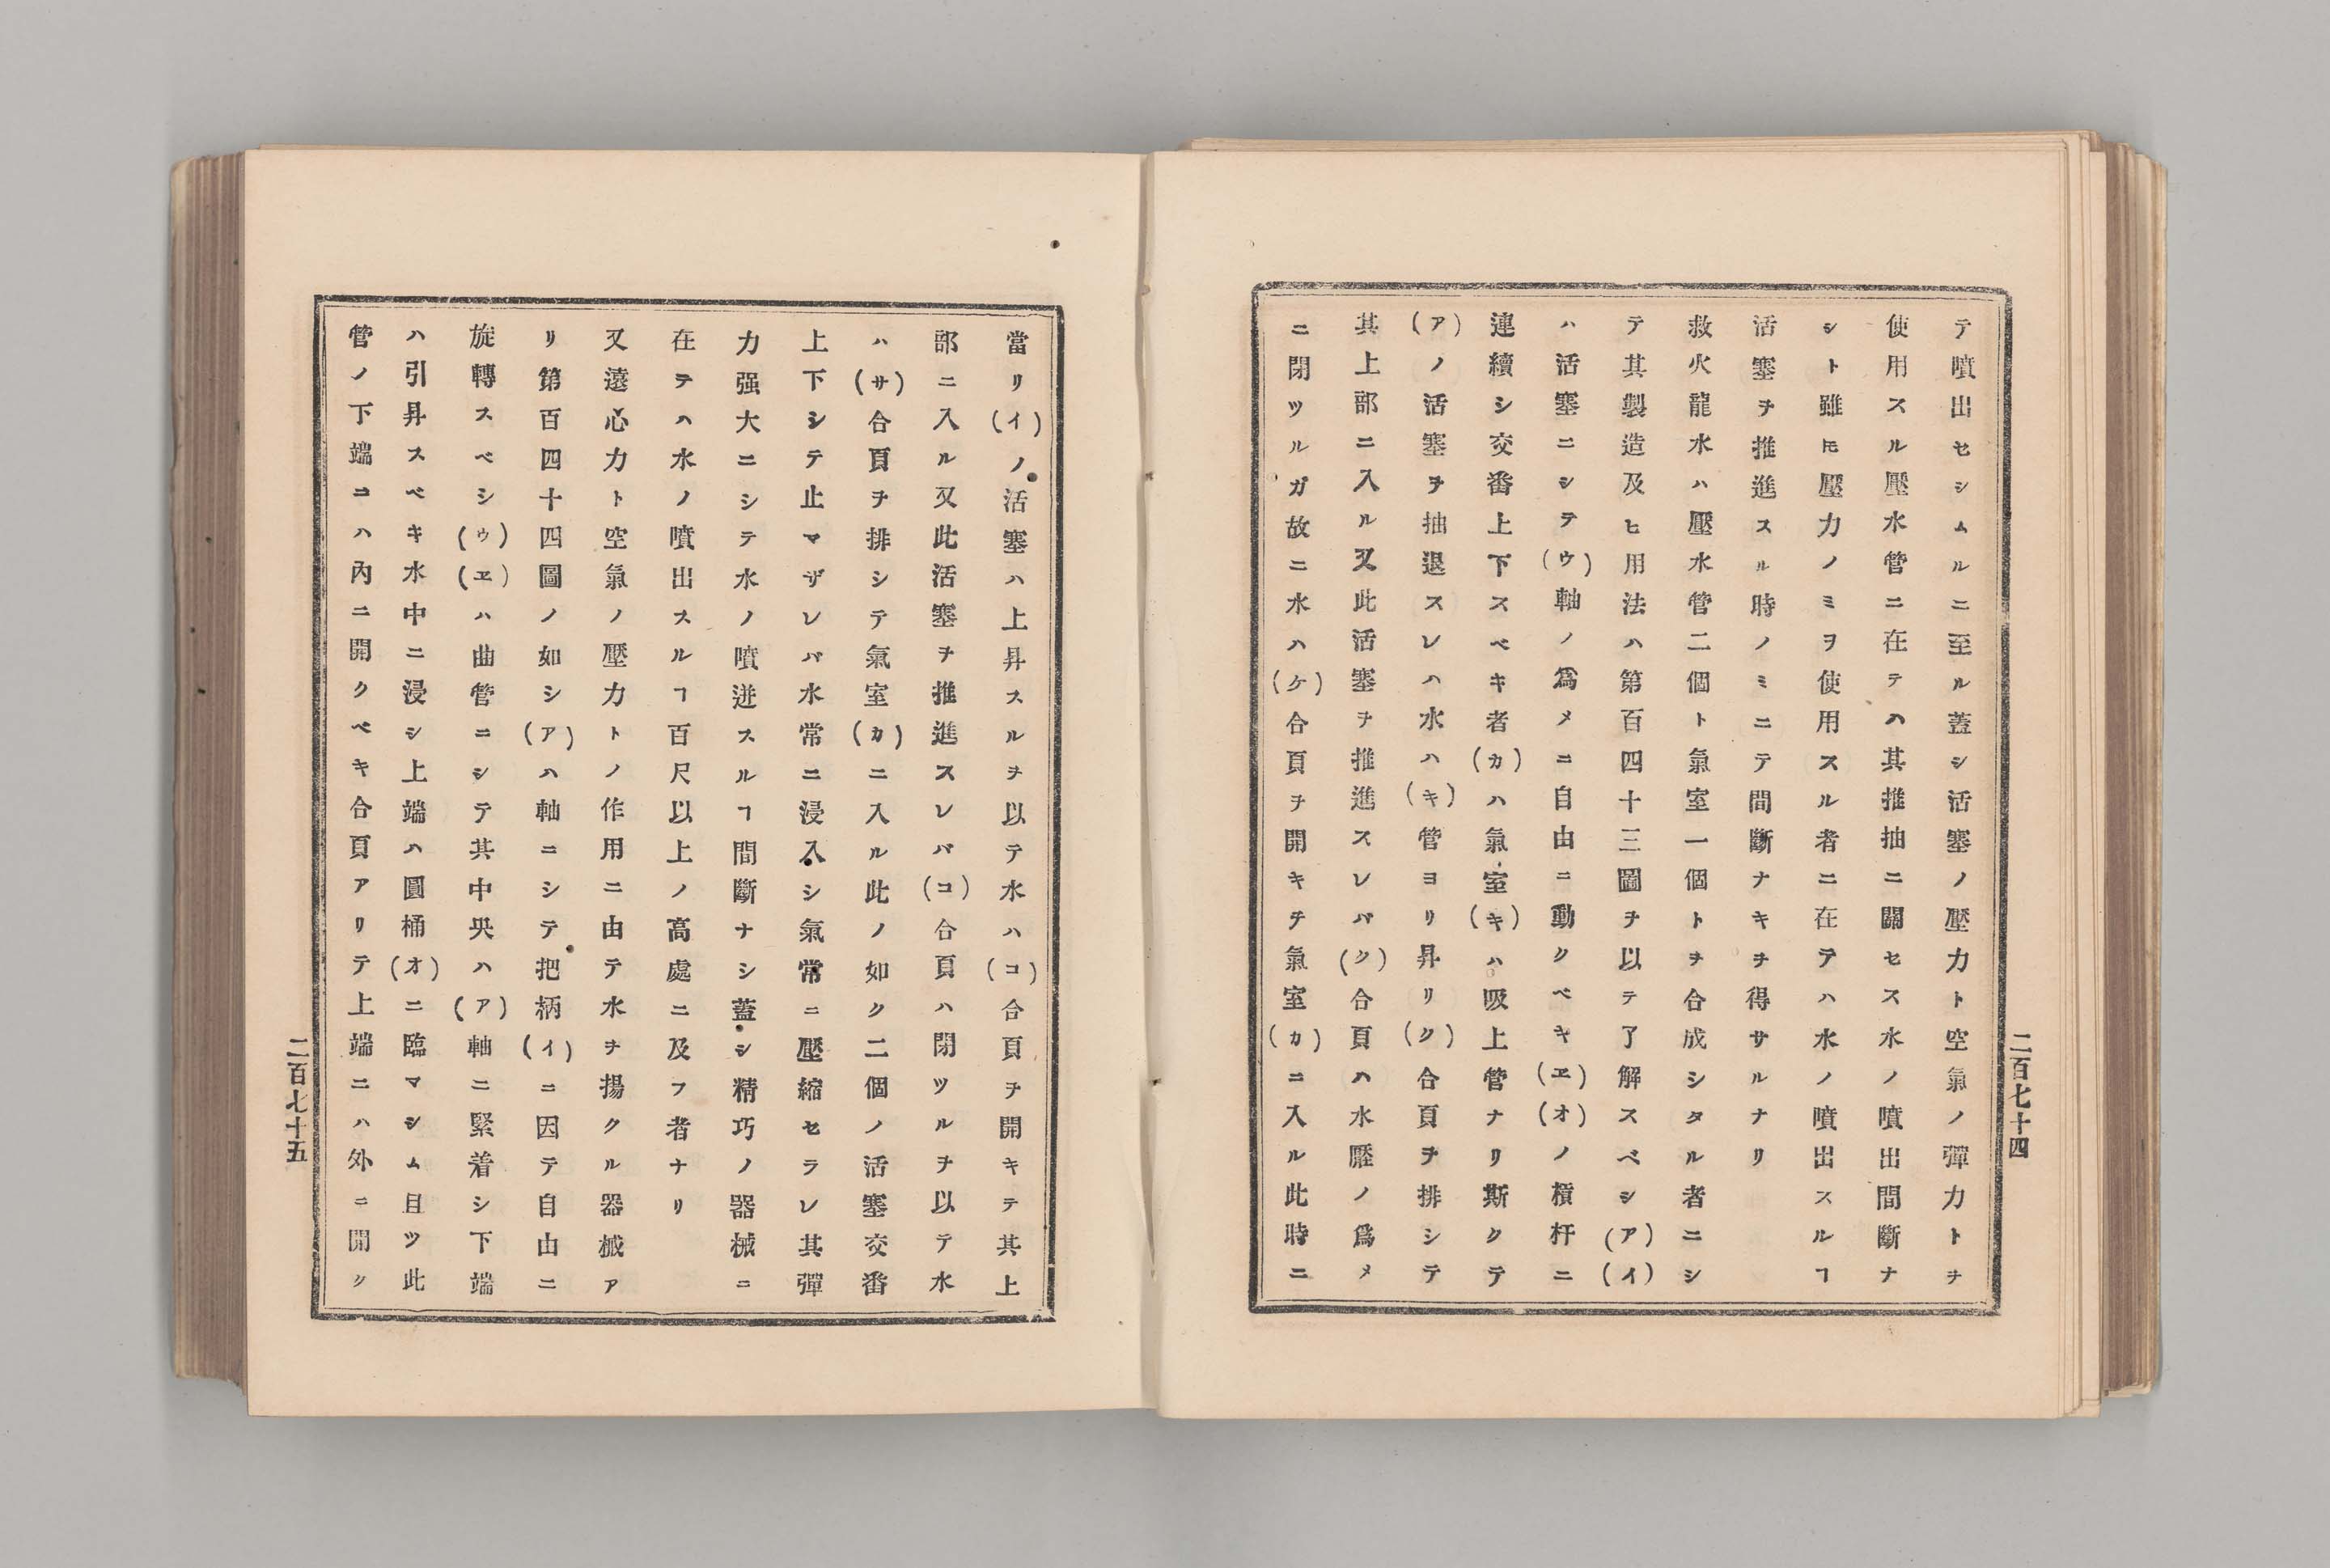 テ噴出セシムルニ至ル蓋シ活塞ノ壓力ト空氣ノ彈力トヲ
使用スル壓水管ニ在テハ其推抽ニ關セス水ノ噴出間斷ナ
シト雖𪜈壓力ノミヲ使用スル者ニ在テハ水ノ噴出スルヿ
活塞ヲ推進スル時ノミニテ間斷ナキヲ得サルナリ
救火龍水ハ壓水管二個ト氣室一個トヲ合成シタル者ニシ
テ其製造及ヒ用法ハ第百四十三圖ヲ以テ了解スベシ(ア)(イ)
ハ活塞ニシテ(ウ)軸ノ爲メニ自由ニ動クベキ(ヱ)(オ)ノ槓杆ニ
連續シ交番上下スベキ者(カ)ハ氣室(キ)ハ吸上管ナリ斯クテ
(ア)ノ活塞ヲ抽退スレハ水ハ(キ)管ヨリ昇リ(ク)合頁ヲ排シテ
其上部ニ入ル又此活塞ヲ推進スレバ(ク)合頁ハ水壓ノ爲メ
ニ閉ツルガ故ニ水ハ(ケ)合頁ヲ開キテ氣室(カ)ニ入ル此時ニ
二百七十四
當リ(イ)ノ活塞ハ上昇スルヲ以テ水ハ(コ)合頁ヲ開キテ其上
部ニ入ル又此活塞ヲ推進スレバ(コ)合頁ハ閉ツルヲ以テ水
ハ(サ)合頁ヲ排シテ氣室(カ)ニ入ル此ノ如ク二個ノ活塞交番
上下シテ止マザレバ水常ニ浸入シ氣常ニ壓縮セラレ其彈
力强大ニシテ水ノ噴迸スルヿ間斷ナシ蓋シ精巧ノ器械ニ
在テハ水ノ噴出スルヿ百尺以上ノ高處ニ及フ者ナリ
又遠心力ト空氣ノ壓力トノ作用ニ由テ水ヲ揚クル器械ア
リ第百四十四圖ノ如シ(ア)ハ軸ニシテ把柄(イ)ニ因テ自由ニ
旋轉スベシ(ゥ)(ヱ)ハ曲管ニシテ其中央ハ(ア)軸ニ緊着シ下端
ハ引昇スベキ水中ニ浸シ上端ハ圓桶(オ)ニ臨マシム且ツ此
管ノ下端ニハ內ニ開クベキ合頁アリテ上端ニハ外ニ開ク
二百七十五